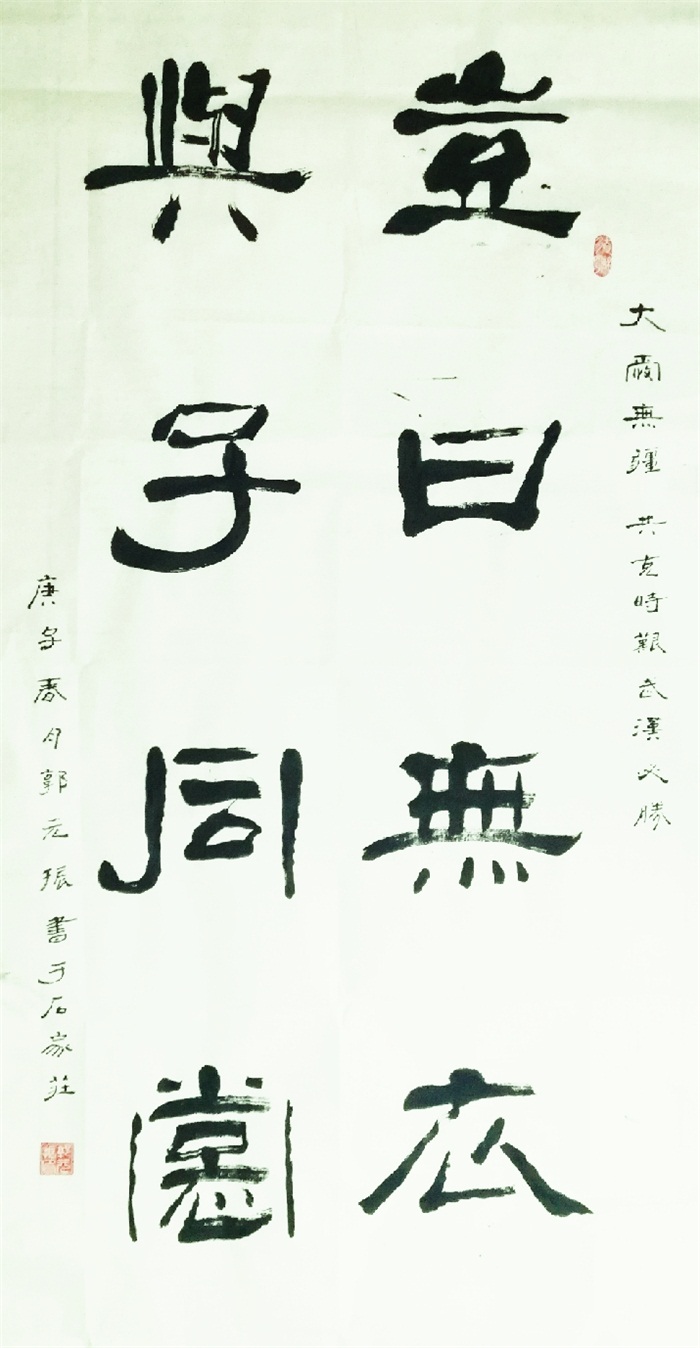 大愛無疆 共克時艱武漢必勝
豈曰無衣
與子同裳
庚子春月郭元振書于石家莊